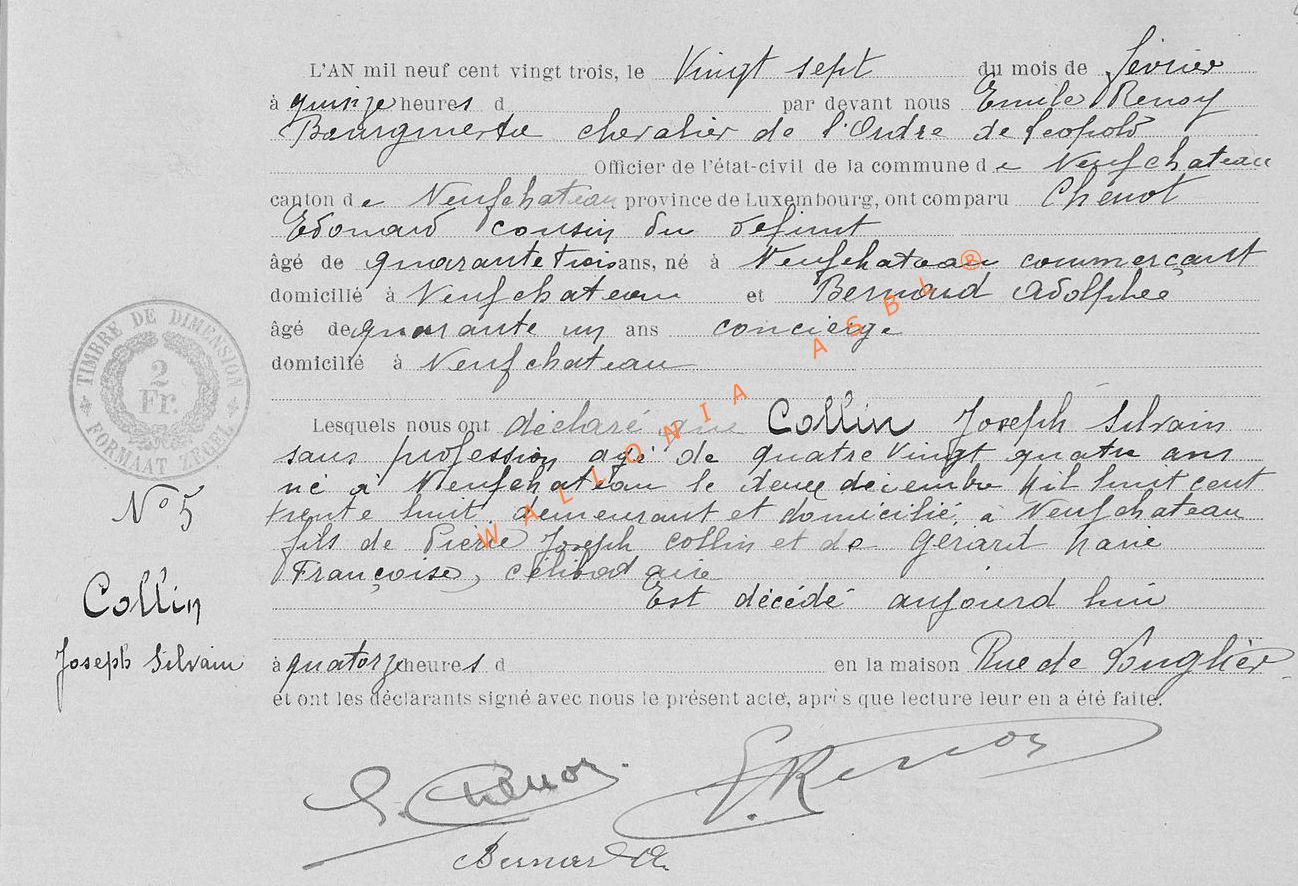 L'AN mil neuf cent vingt trois, le Vingt sept du mois de février
à quinze heures d par devant nous Emile Renoy
Bourgmestre chevalier de l'Ordre de Léopold
Officier de l'état-civil de la commune de Neufchateau
canton de Neufchateau province de Luxembourg, ont comparu Chenot
Edouard cousin du défunt
âgé de quarante trois ans, né à Neufchateau commerçant
domicilié à Neufchateau et Bernard Adolphe
âgé de quarante un ans concierge
domicilié à Neufchateau
Lesquels nous ont déclaré que Collin Joseph Silvain
sans profession agé de quatre Vingt quatre ans
né a Neufchateau le décembre Mil huit cent
trente huit, demeurant et domicilié, à Neufchateau
fils de Pierre Joseph Collin et de Gerard Marie
Françoise, célibataire
Est décédé aujourd hui
à quatorze heures d en la maison Rue de Longlier
et ont les déclarants signé avec nous le présent acte, après que lecture leur en a été faite.
TIMBRE DE DIMENSION
2
Fr.
FORMAAT ZEGEL
No 5
Collin
Joseph Silvain
WALLONIA ASBL ®
E. Chenot
E. Renoy
Bernard A